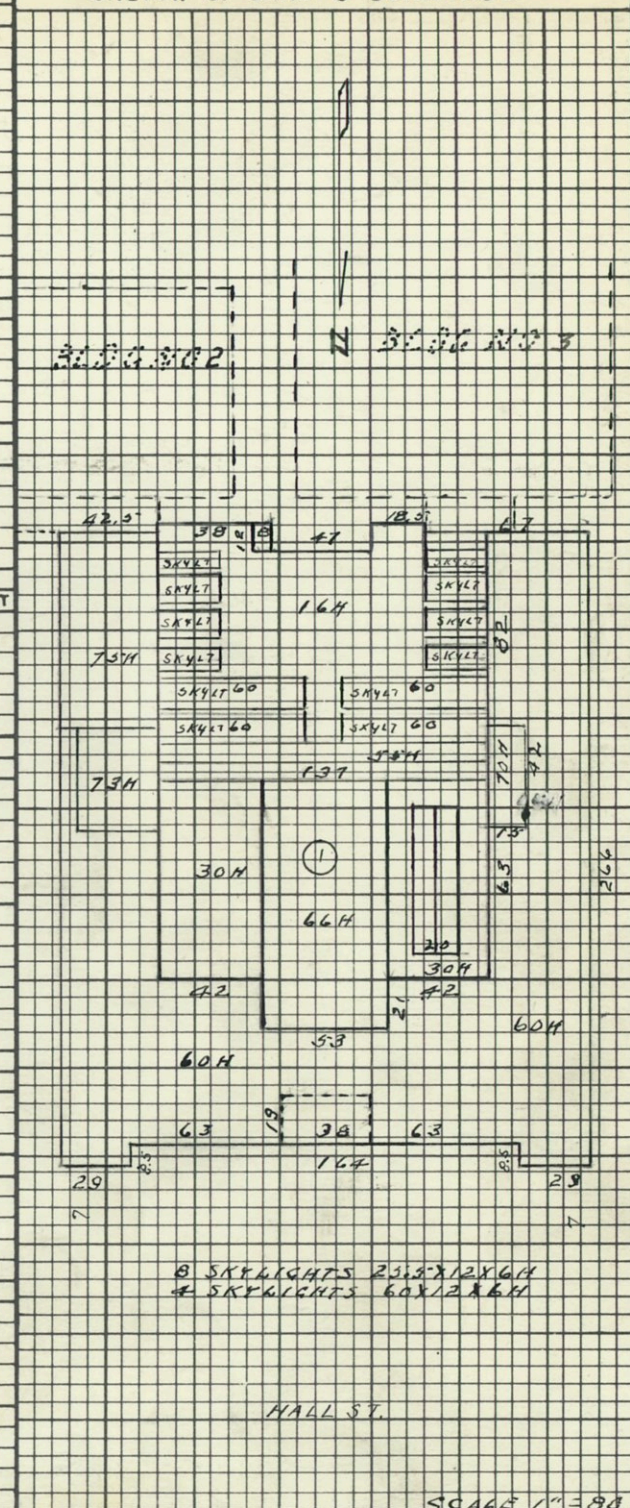 N
BLDG NO 2
BLDG NO 3
42.5
38
12
8
47
18.5
67
SKYLT
SKYLT
SKYLT
SKYLT
SKYLT
SKYLT
SKYLT
SKYLT
16H
82
75H
SKYLT 60
SKYLT 60
SKYLT 60
SKYLT 60
55H
137
73H
70H
42
15
30H
1
66H
65
266
20
30H
42
42
21
53
60H
60H
19
63
38
63
8.5
164
8.5
29
29
7
7
8 SKYLIGHTS 25.5X12X6H
4 SKYLIGHTS 60X12X6H
HALL ST.
SCALE 1"=80